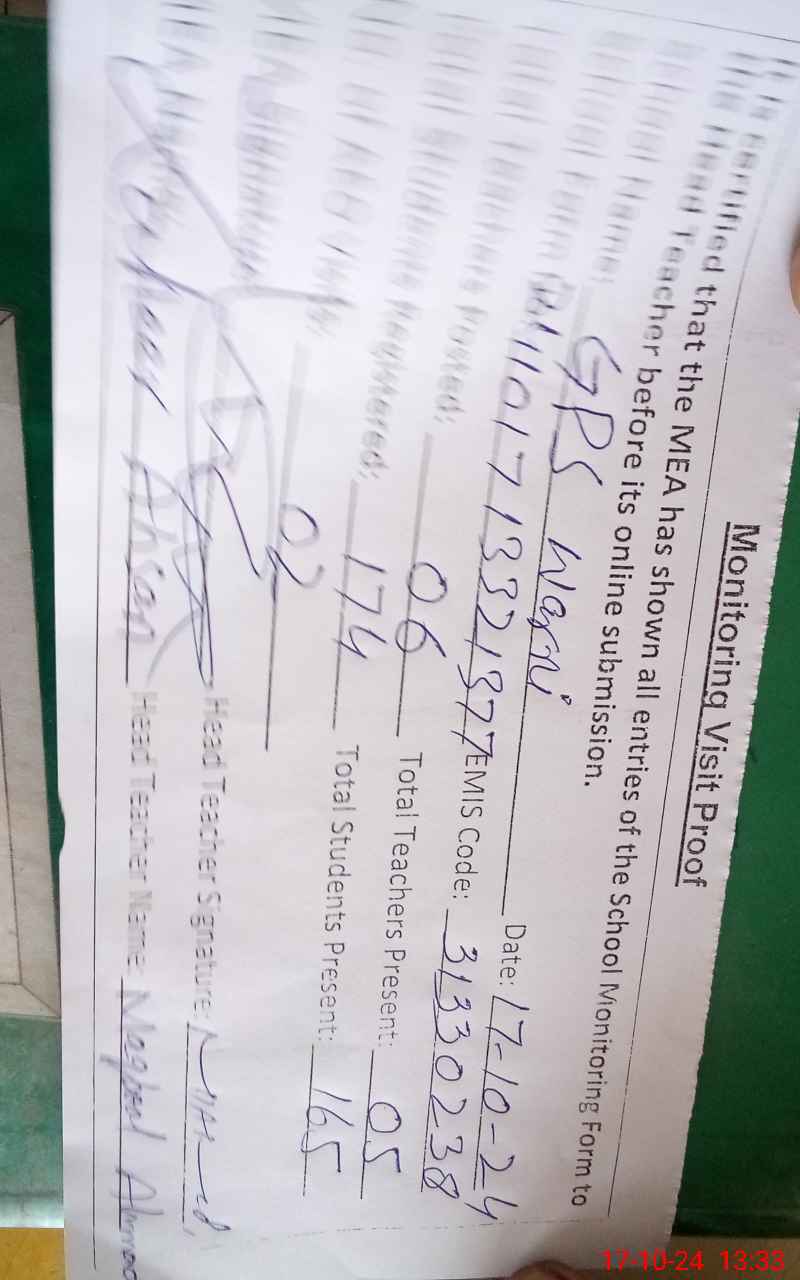 Monitoring Visit Proof
It is certified that the MEA has shown all entries of the School Monitoring Form to
the Head Teacher before its online submission.
School Name: GPS Warni Date: 17-10-24
School Form 1101713321377 EMIS Code: 31330238
Total Teachers Posted: 06 Total Teachers Present: 05
Total Students Registered: 174 Total Students Present: 165
02
Head Teacher Signature:
Ahsan Head Teacher Name: Maqbool Ahmad
17-10-24 13:33